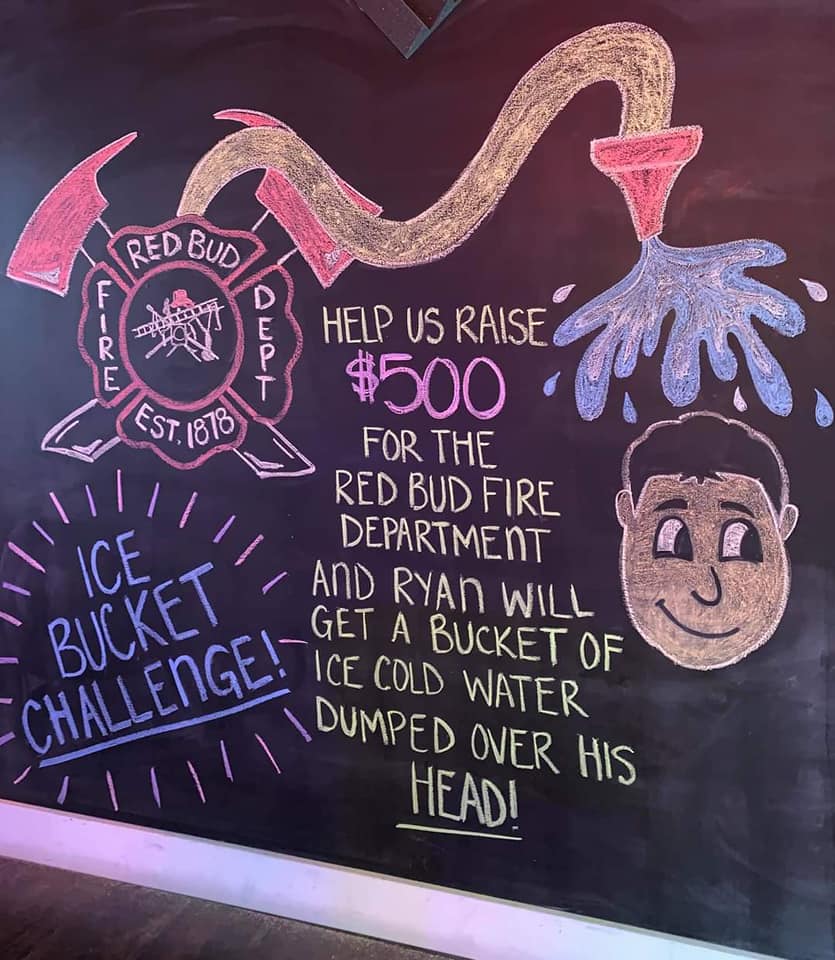 RED BUD
FIRE
DEPT
EST. 1878
HELP US RAISE
$500
FOR THE
RED BUD FIRE
DEPARTMENT
AND RYAN WILL
GET A BUCKET OF
ICE COLD WATER
DUMPED OVER HIS
HEAD!
ICE
BUCKET
CHALLENGE!